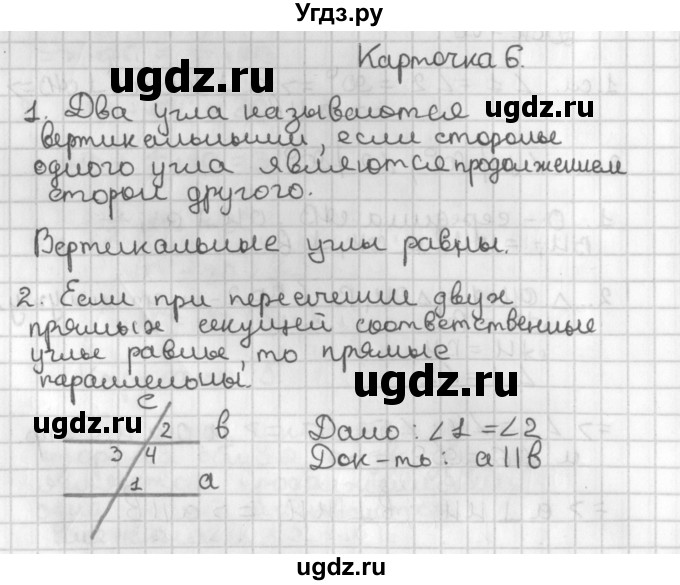 Угдз.ру
Карточка 6.
ugdz.ru ugdz.ru
1. Два угла называются
вертикальными, если стороны
одного угла являются продолжением
сторон другого.
Вертикальные углы равны.
2. Если при пересечении двух
прямых секущей соответственные
углы равны, то прямые
параллельны.
ugdz.ru
c
ugdz.ru
2 в Дано: ∠1=∠2
3 4 Док-ть: a||в
1 a
ugdz.ru